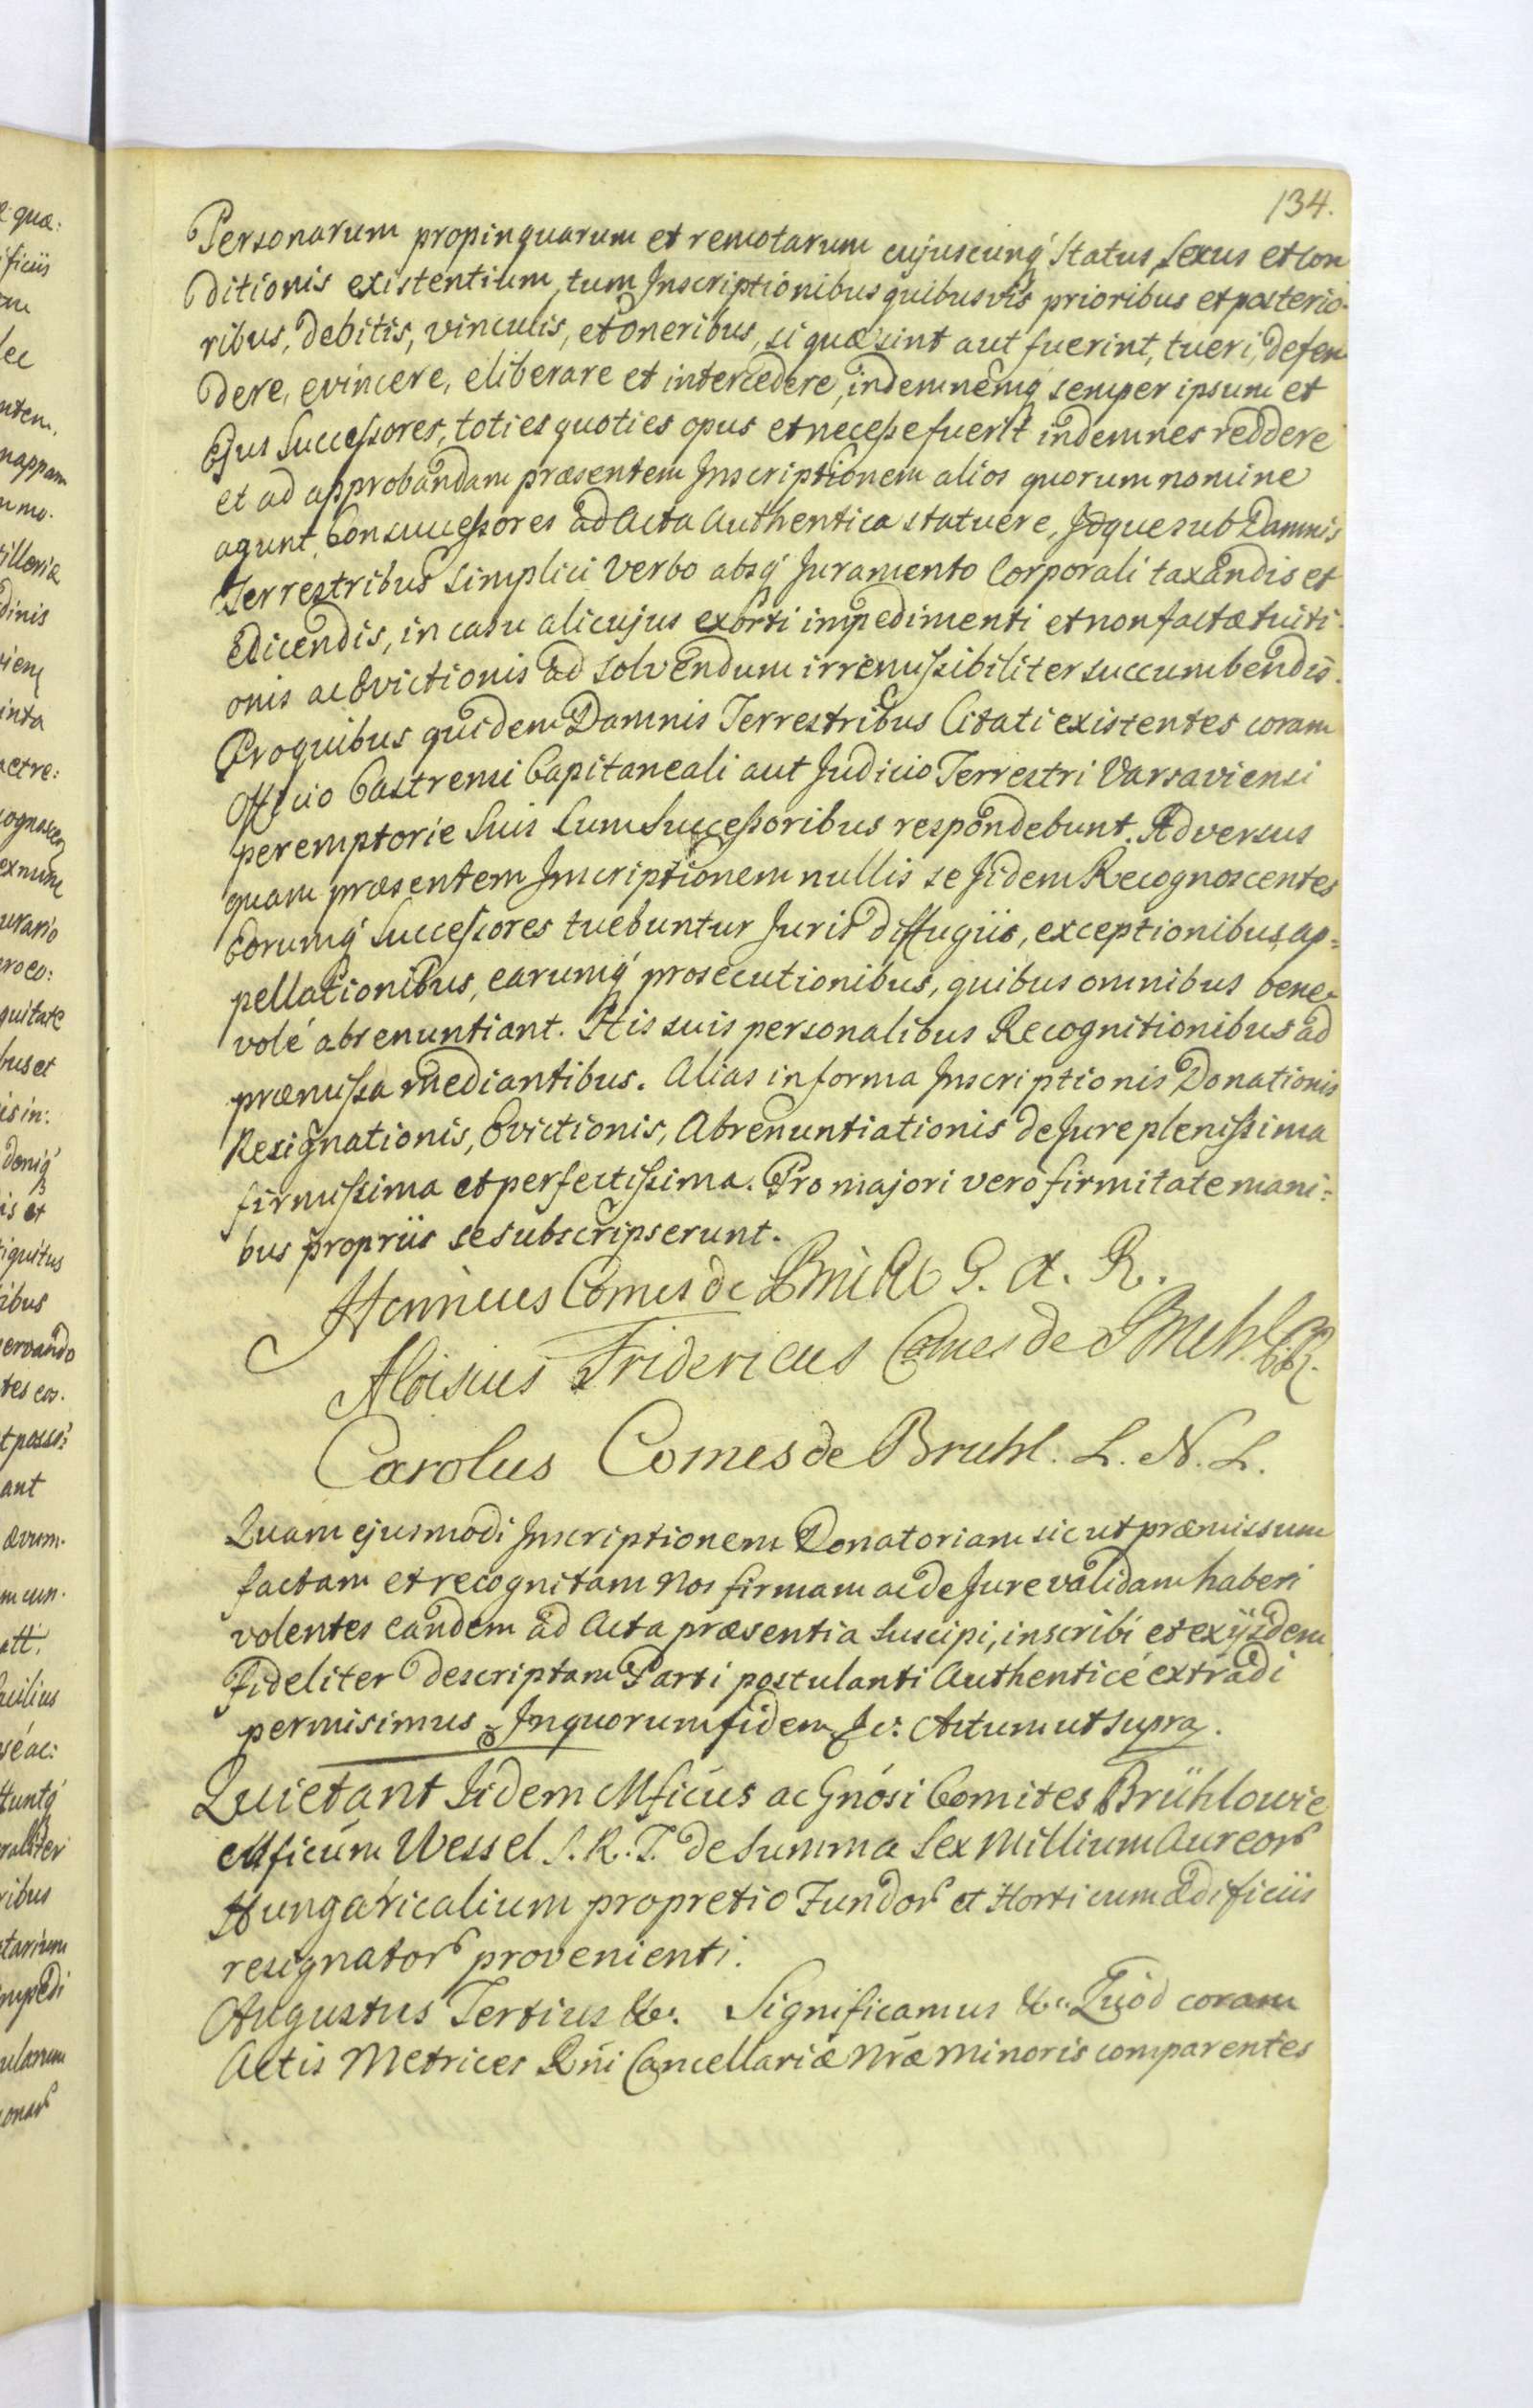 134.
Personarum propinquarum et remotarum cujuscunq́ Status, Sexus et Con
ditionis existentium, tum Inscriptionibus quibusvis prioribus et posterio-
ribus, debitis, vinculis, et Oneribus, si quæ sint aut fuerint, tueri, defen
dere, evincere, eliberare et intercedere, indemnemq́ semper ipsum et
Ejus Successores, toties quoties opus et necesse fuerit indemnes reddere
et ad approbandam præsentem Inscriptionem alios quorum nomine
agunt, Consuccessores ad Acta Authentica statuere, Idque sub Damnis
Terrestribus Simplici Verbo absq́ Juramento Corporali taxandis et
edicendis, in casu alicujus exorti impedimenti et non factæ tuiti-
onis ac Evictionis ad solvendum irremissibiliter succumbendis.
Pro quibus quidem Damnis Terrestribus Citati existentes coram
Officio Castrensi Capitaneali aut Judicio Terrestri Varsaviensi
peremptorie Suis cum Successoribus respondebunt. Adversus
quam præsentem Inscriptionem nullis se Iidem Recognoscentes
Eorumq́ Successores tuebuntur Juris diffugiis, exceptionibus, ap=
pellationibus, earumq́ prosecutionibus, quibus omnibus bene-
volé abrenuntiant. His suis personalibus Recognitionibus ad
præmissa mediantibus. Alias in forma Inscriptionis Donationis
Resignationis, Evictionis, Abrenuntiationis de Jure plenissima
firmissima et perfectissima. Pro majori vero firmitate mani=
bus propriis se subscripserunt.
Henricus Comes de Brühl G. A. R.
Aloisius Fridericus Comes de Bruhl
Carolus Comes de Bruhl. L. N. L.
Quam ejusmodi Inscriptionem Donatoriam sic ut præmissum
factam et recognitam Nos firmam ac de Jure validam haberi
volentes eandem ad Acta præsentia Suscipi, inscribi et ex ijsdem
fideliter descriptam Parti postulanti Authenticé extradi
permisimus. In quorum fidem &c: Actum ut supra.
Quietant Iidem Mficus ac Gnosi Comites Brühlowie
Mficum Wessel S. R. T. de Summa Sex Millium Aureor
Hungaricalium pro pretio Fundor et Horti cum ædificiis
resignator provenienti.
Augustus Tertius &c. Significamus &c. Quod coram
Actis Metrices Rni Cancellariæ Nræ Minoris comparentes